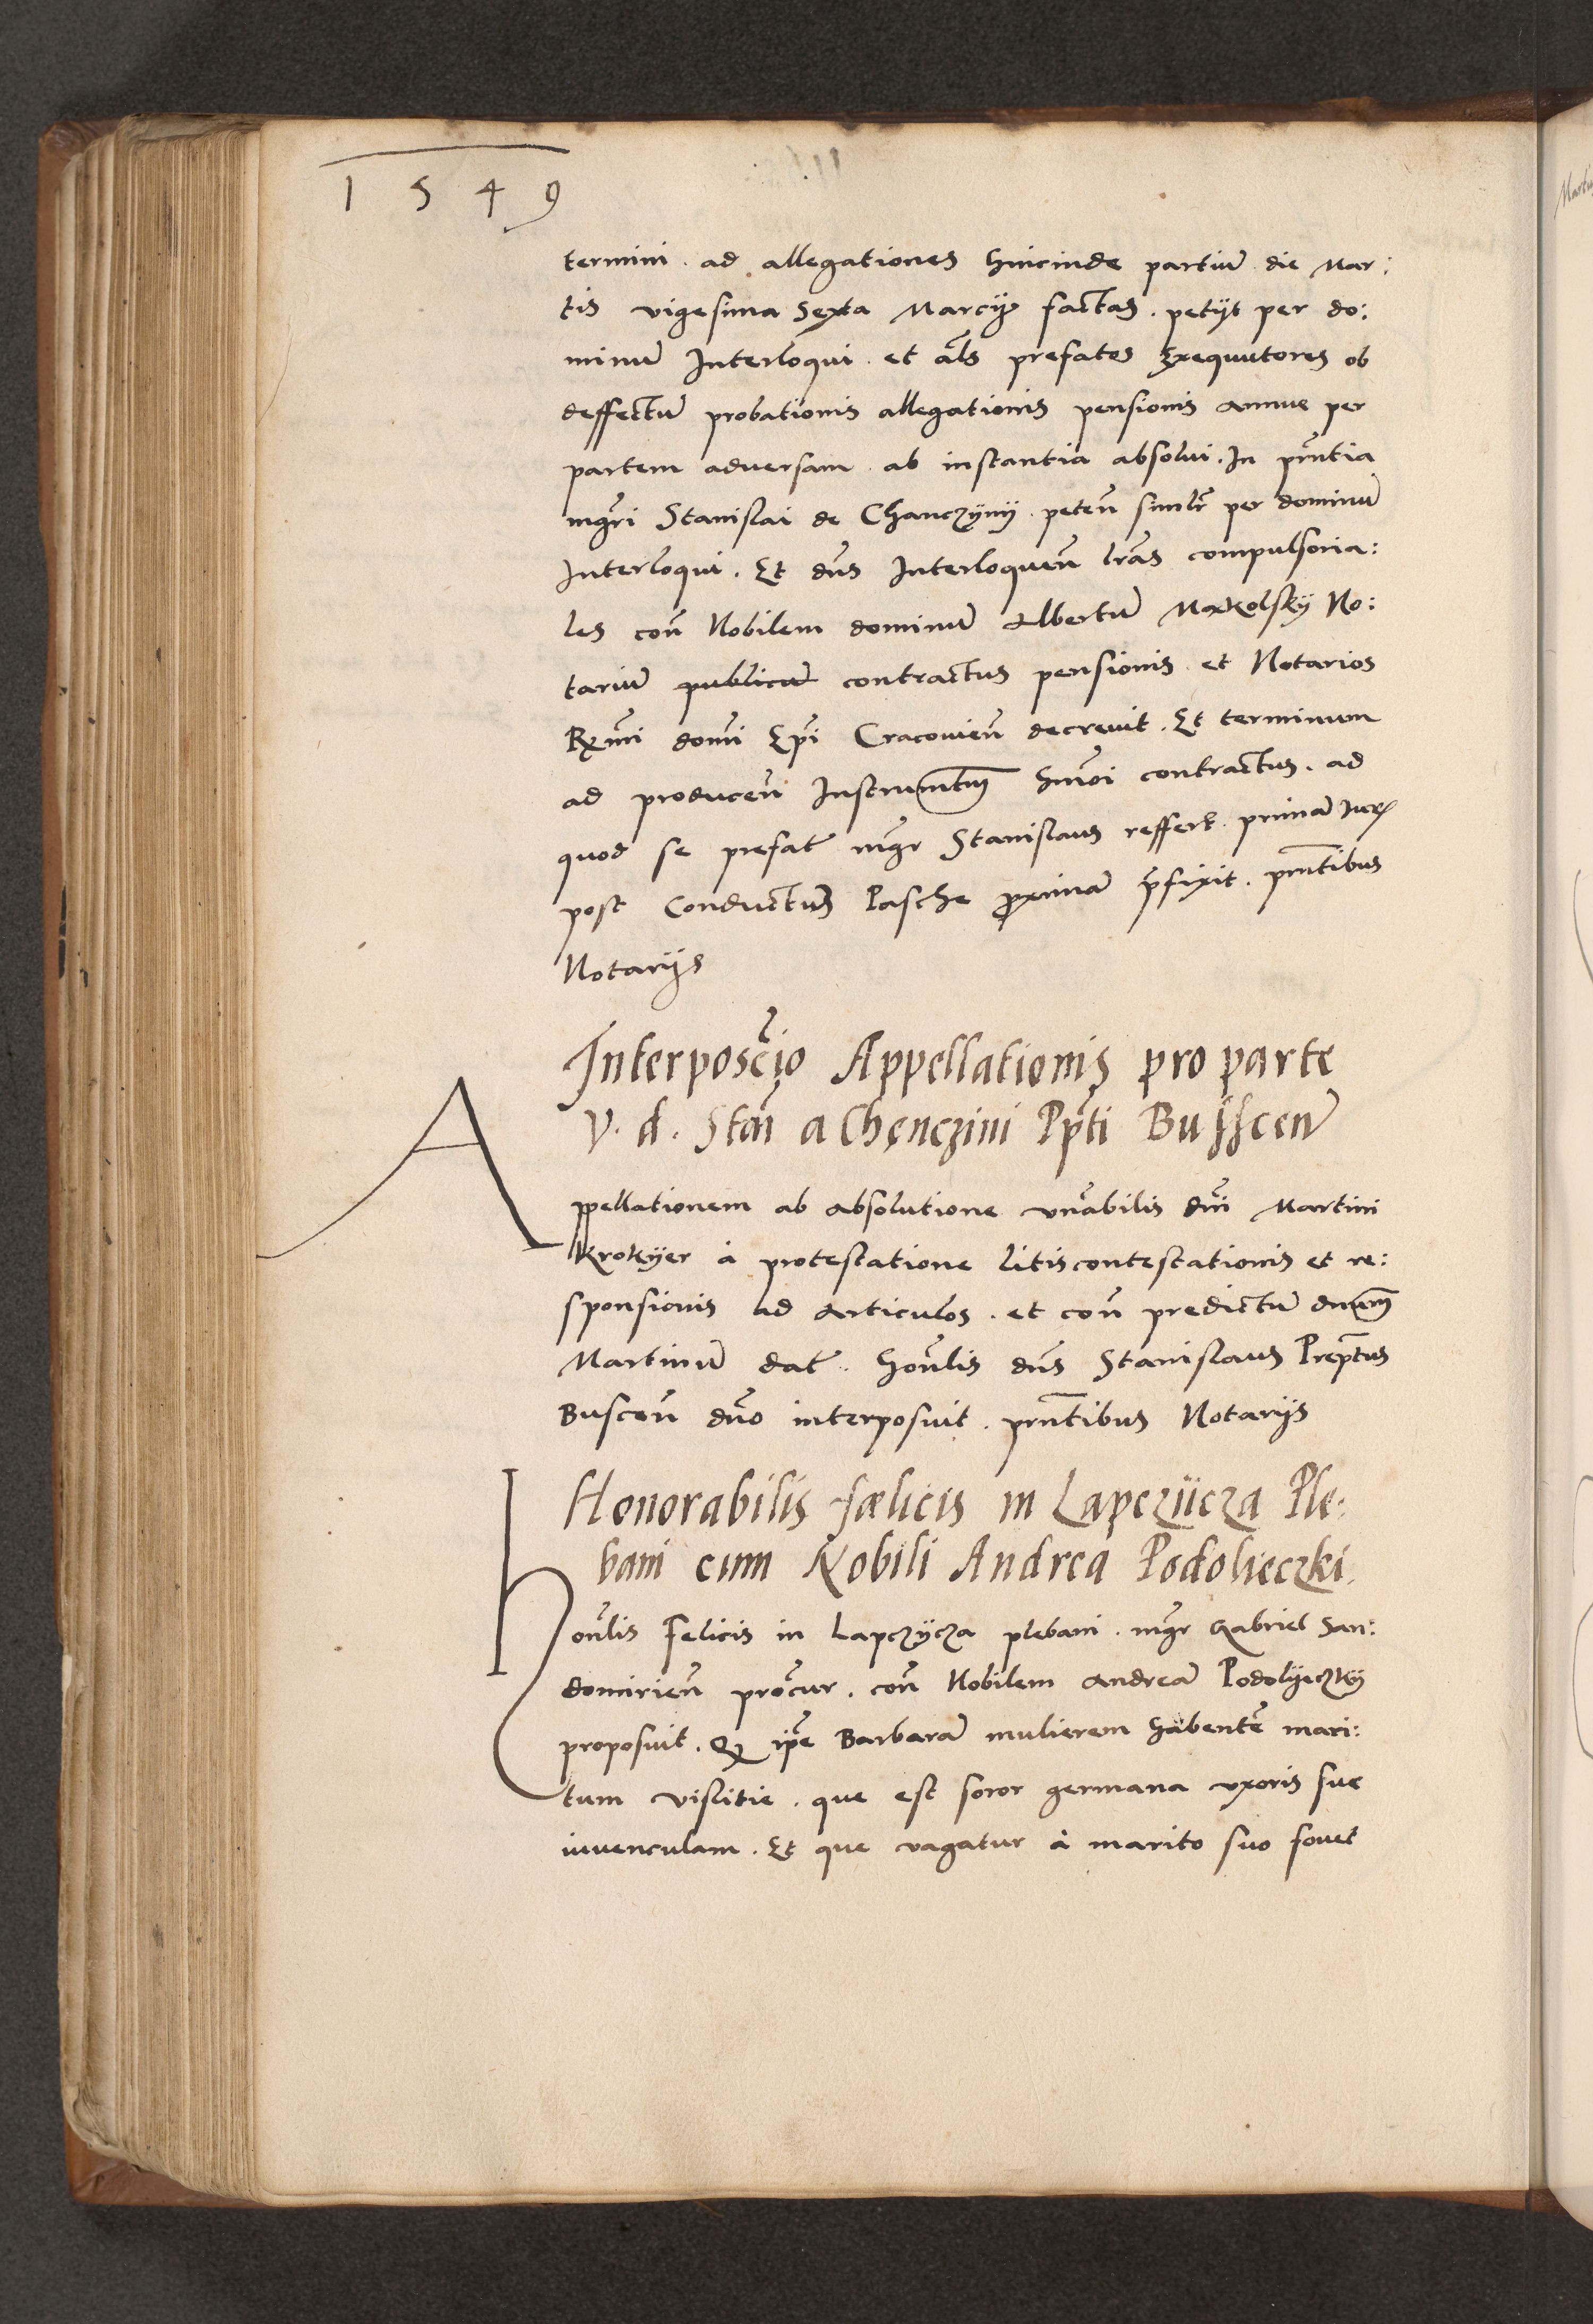 1549
termini . ad allegationes hincinde partiũ die Mar:
tis vigesima Sexta Marcÿ factas . petÿt per do:
minũ Interloqui . et als prefatos Exequutores ob
deffectũ probationis allegationis pensionis annue per
partem adversam . ab instantia absolui . In pñtia
mgri Stanislai de Chanczÿnÿ . peteñ similr per dominũ
Interloqui . Et dñs Interloqueñ lras compulsoria:
les coñ Nobilem dominũ Albertũ Markolskÿ No:
tariũ publicũ contractus pensionis et Notarios
Rmi domi Epi Cracovieñ decrevit . Et terminum
ad produceñ Instrumtm hmoi contractus . ad
quod se prefat mgr Stanislaus reffert . primã Iur
post Conductũ Pasche proximã pfixit . pñtibus
Notarÿs
Interposicio Appellationis pro parte
V. d. Stañ a Chęnczini Ppti Busscen
Appellationem ab absolutione vnabilis dñi Martini
Krokÿer à protestatione litiscontestationis et re:
sponsionis ad articulos . et coñ predictũ dnum
Martinũ dat . honlis dñs Stanislaus Preptus
Busceñ dño interposuit . pñtibus Notarÿs
Honorabilis fælicis in Lapcziicza Ple:
bani cum Nobili Andrea Podolieczki.
Honlis Felicis in Lapczÿcza plebani . mgr Gabriel San:
domirieñ procur . coñ Nobilem Andreã Podolÿeczkÿ
proposuit . Q ipe Barbarã mulierem habentẽ mari:
tum viscitie . que est soror germana vxoris sue
iuvenculam . Et que vagatur à marito suo fovet